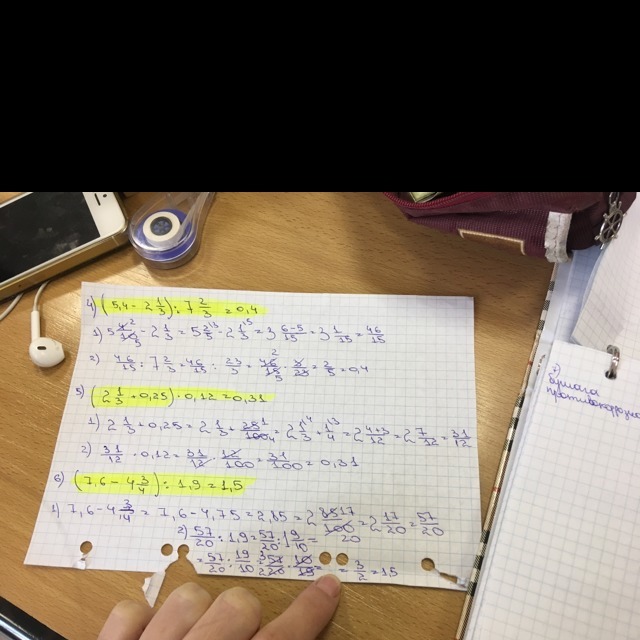 4) (5,4 - 2 1/3) : 7 2/3 = 0,4
1) 5 4/10 - 2 1/3 = 5 2/5 - 2 1/3 = 3 6-5/15 = 3 1/15 = 46/15
2) 46/15 : 7 2/3 = 46/15 : 23/3 = 46/15 · 3/23 = 2/5 = 0,4
5) (2 1/3 + 0,25) · 0,12 = 0,31
1) 2 1/3 + 0,25 = 2 1/3 + 25/100 = 2 1/3 + 1/4 = 2 4+3/12 = 2 7/12 = 31/12
2) 31/12 · 0,12 = 31/12 · 12/100 = 31/100 = 0,31
6) (7,6 - 4 3/4) : 1,9 = 1,5
1) 7,6 - 4 3/4 = 7,6 - 4,75 = 2,85 = 2 85/100 = 2 17/20 = 57/20
2) 57/20 : 1,9 = 57/20 : 19/10 =
= 57/20 : 19/10 = 57/20 · 10/19 = 3/2 = 1,5